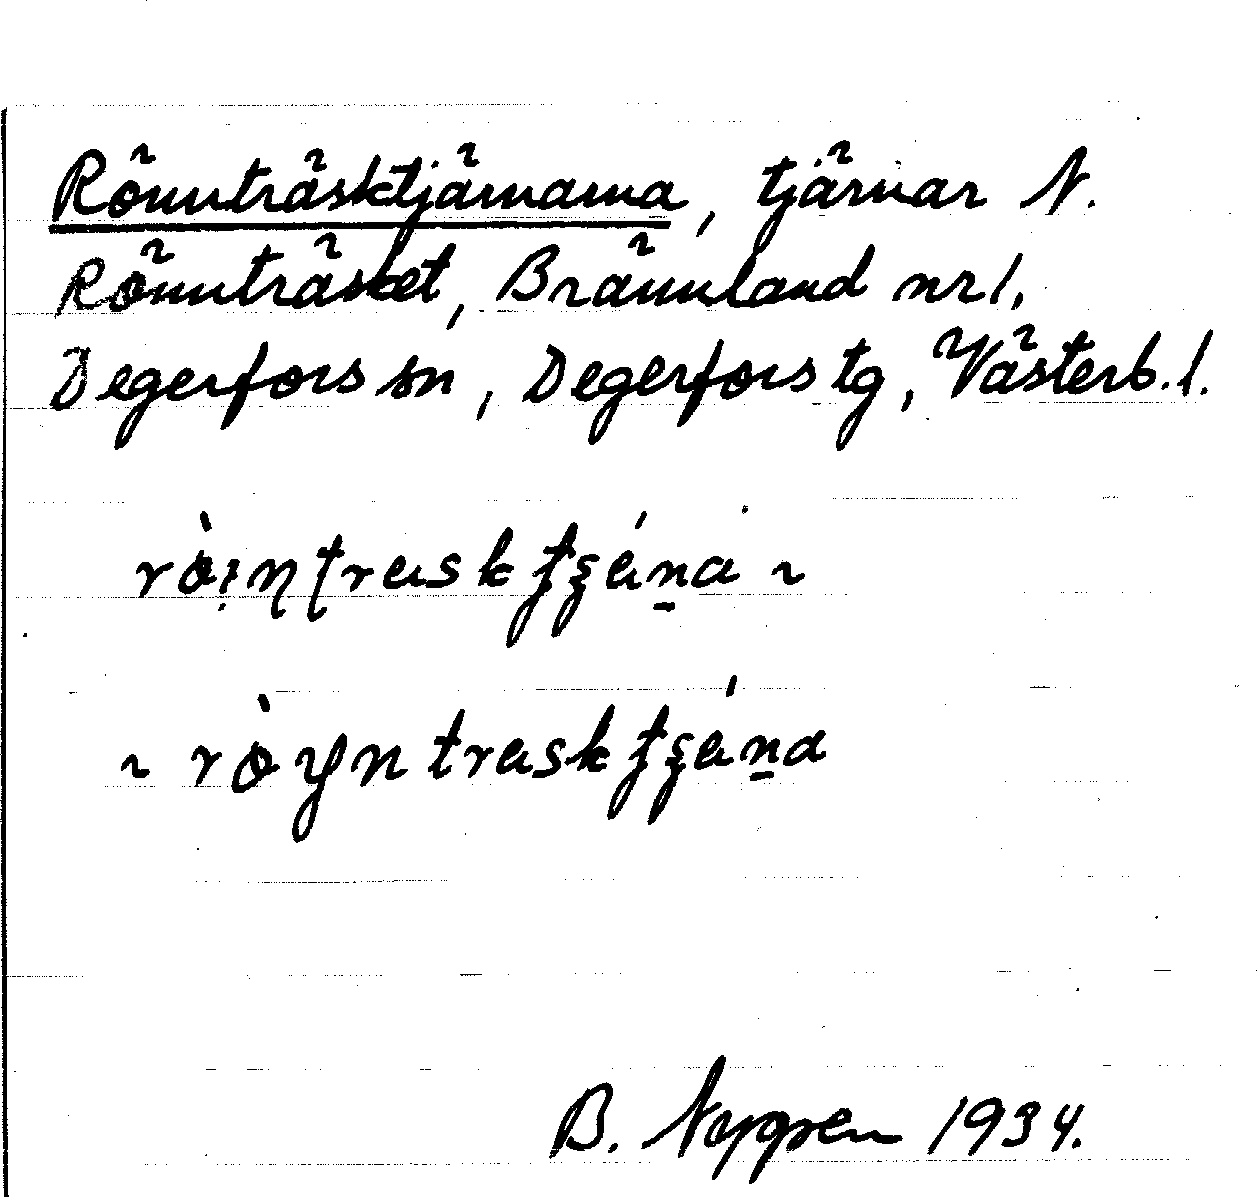 Rönnträsktjärnarna, tjärnar N.
Rönnträsket, Brännland nr 1,
Degerfors sn, Degerfors tg, Västerb. l.
B. Nygren 1934.